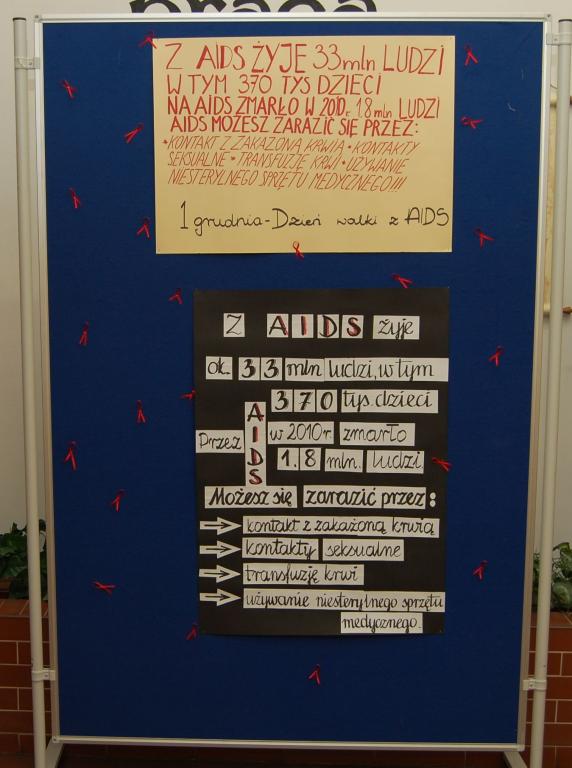 praca
Z AIDS ŻYJE 33mln LUDZI
W TYM 370 TYS DZIECI
NA AIDS ZMARŁO W 2010r. 1.8 mln LUDZI
AIDS MOŻESZ ZARAZIĆ SIĘ PRZEZ:
*KONTAKT Z ZAKAŻONĄ KRWIĄ *KONTAKTY
SEKSUALNE * TRANSFUZJE KRWI * UŻYWANIE
NIESTERYLNEGO SPRZĘTU MEDYCZNEGO!!!
1 grudnia-Dzień walki z AIDS
Z AIDS żyje
ok. 33 mln ludzi, w tym
370 tys. dzieci
Przez AIDS w 2010 r. zmarło
1.8 mln. ludzi.
Możesz się zarazić przez:
kontakt z zakażoną krwią
kontakty seksualne
transfuzję krwi
używanie niesterylnego sprzętu
medycznego.